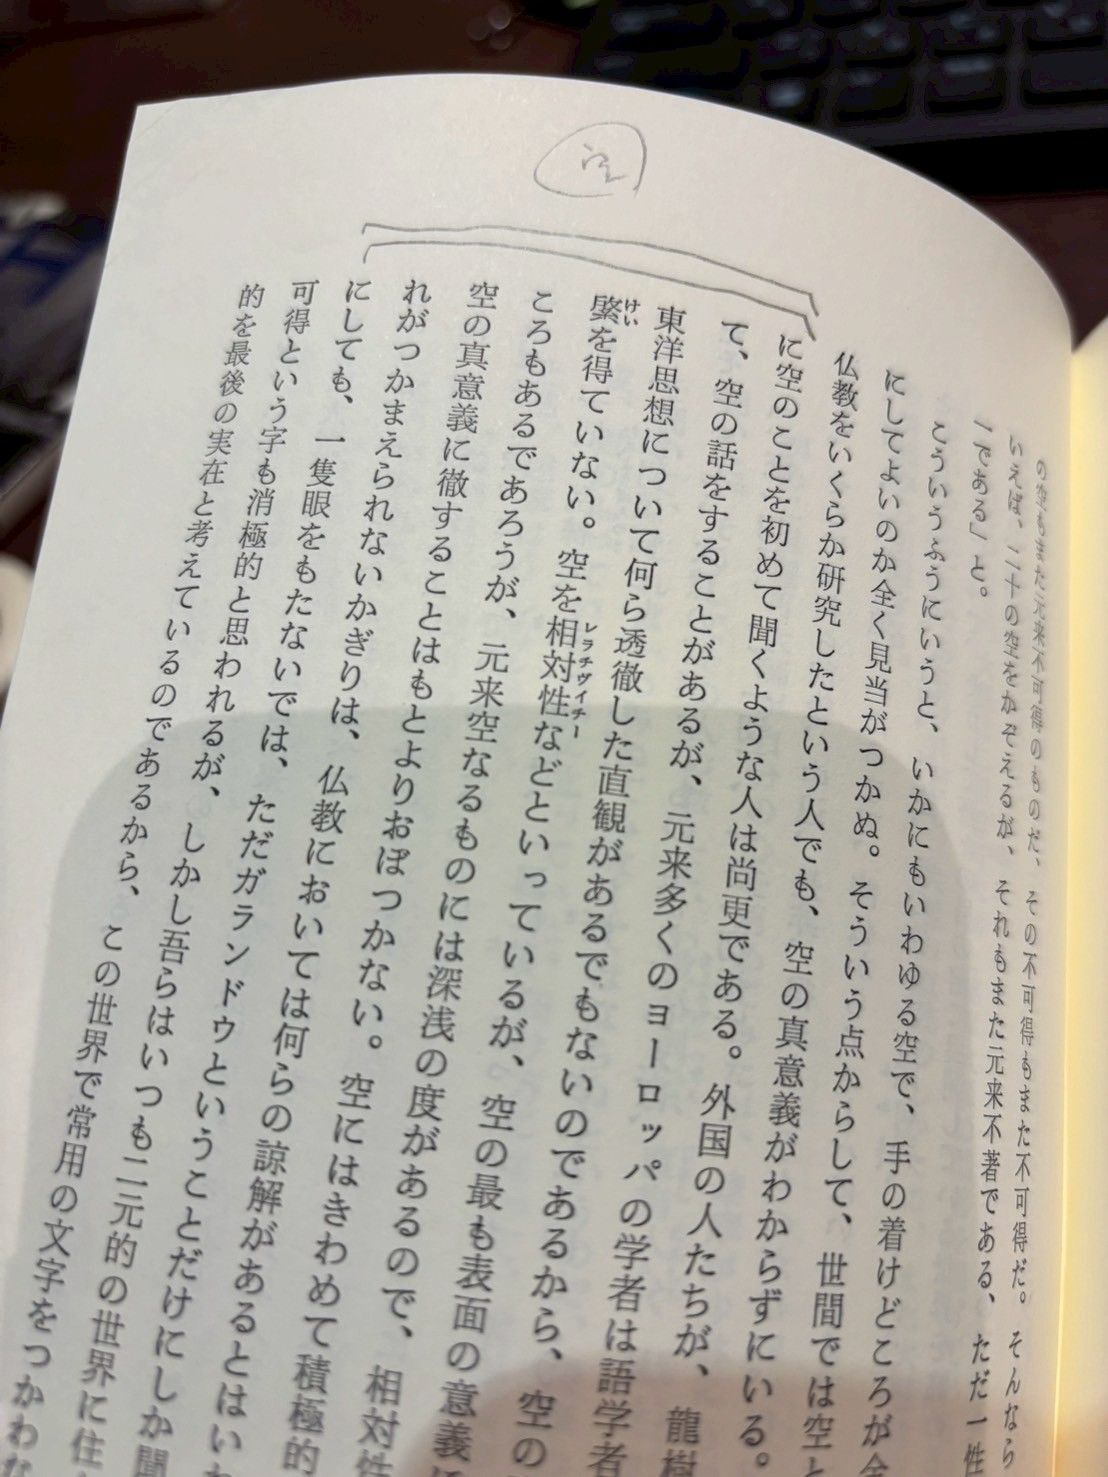 空
の空もまた元来不可得のものだ、その不可得もまた不可得だ。そんなら
いえば、二十の空をかぞえるが、それもまた元来不著である、ただ一性
「である」と。
こういうふうにいうと、いかにもいわゆる空で、手の着けどころが全
にしてよいのか全く見当がつかぬ。そういう点からして、世間では空と
仏教をいくらか研究したという人でも、空の真意義がわからずにいる。
に空のことを初めて聞くような人は尚更である。外国の人たちが、龍樹
て、空の話をすることがあるが、元来多くのヨーロッパの学者は語学者
東洋思想について何ら透徹した直観があるでもないのであるから、空の
綮を得ていない。空を相対性などといっているが、空の最も表面の意義
けい
レラチヴィチー
ころもあるであろうが、元来空なるものには深浅の度があるので、相対性
空の真意義に徹することはもとよりおぼつかない。空にはきわめて積極的
れがつかまえられないかぎりは、仏教においては何らの諒解があるとはい
にしても、一隻眼をもたないでは、ただガランドウということだけにしか聞
可得という字も消極的と思われるが、しかし吾らはいつも二元的の世界に住
的を最後の実在と考えているのであるから、この世界で常用の文字をつかわな